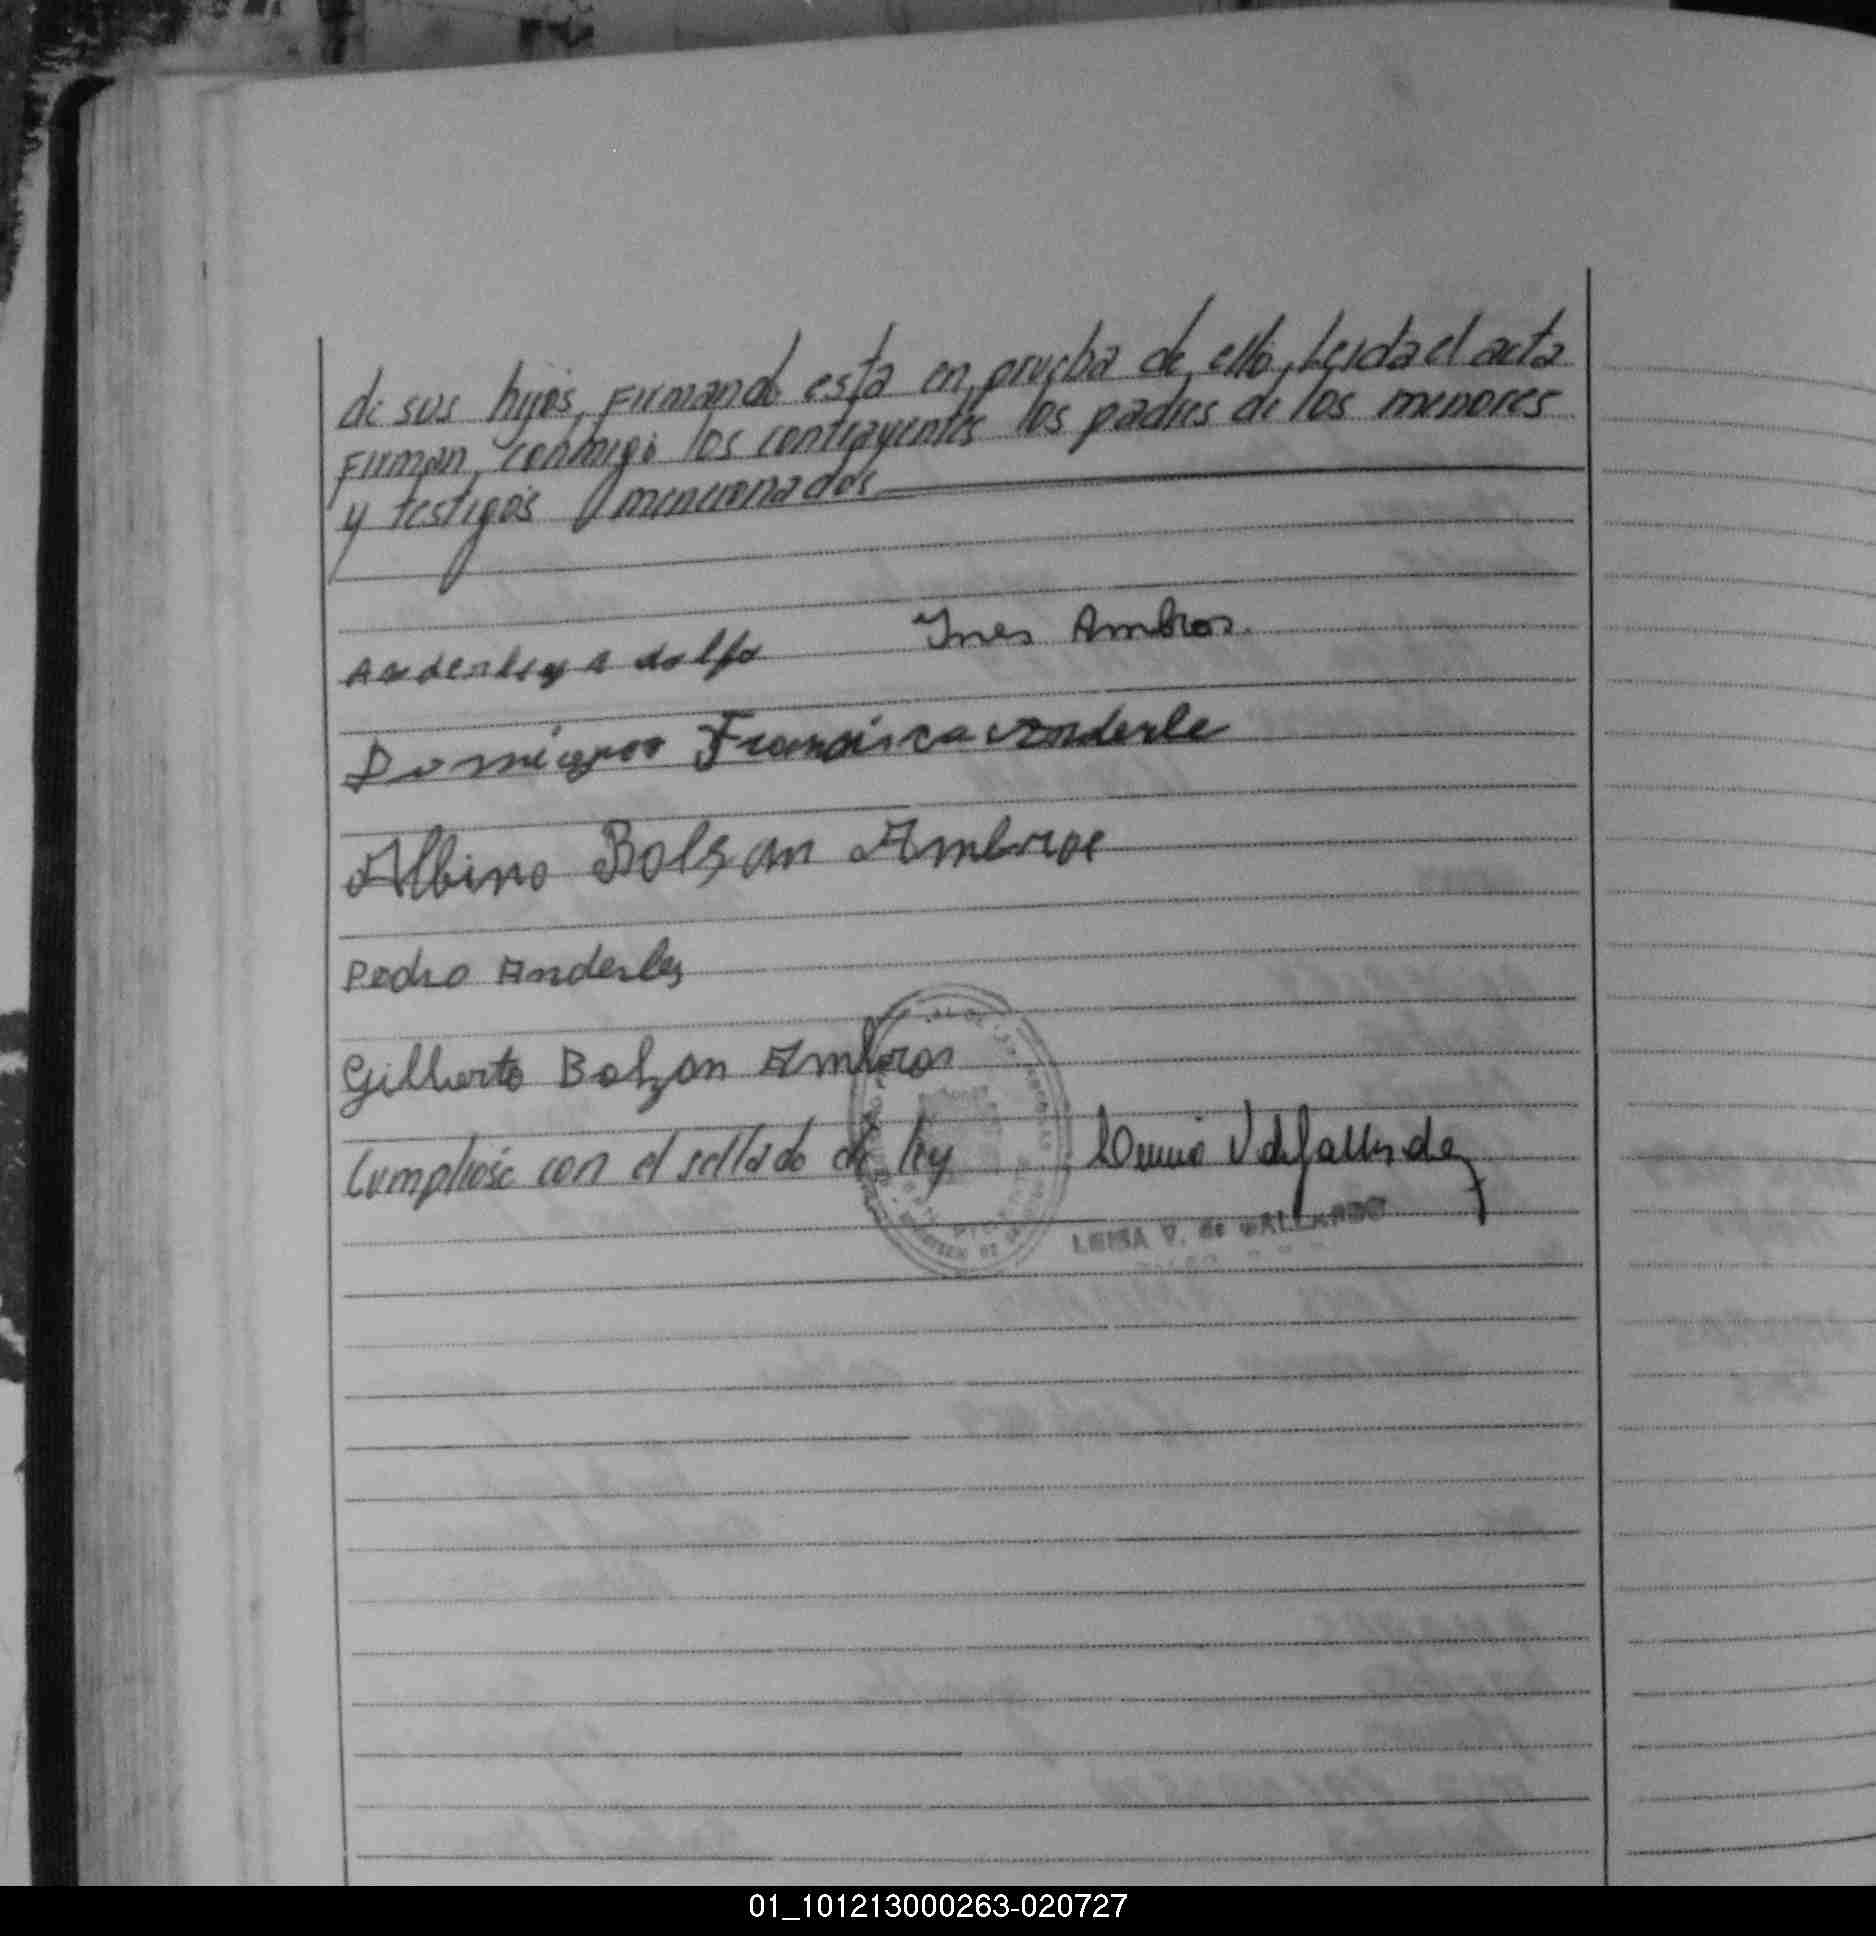 de sus hijos, firmando esta en prueba de ello. Leida el acta
firman conmigo los contrayentes los padres de los menores
y testigos mencionados
Anderley Adolfo Ynes Ambros.
Francisca Anderle
Albino Bolzan Ambros
Pedro Anderley
Gilberto Bolzan Ambros
Cumpliose con el sellado de ley
LUISA V. de GALLARDO
01_101213000263-020727